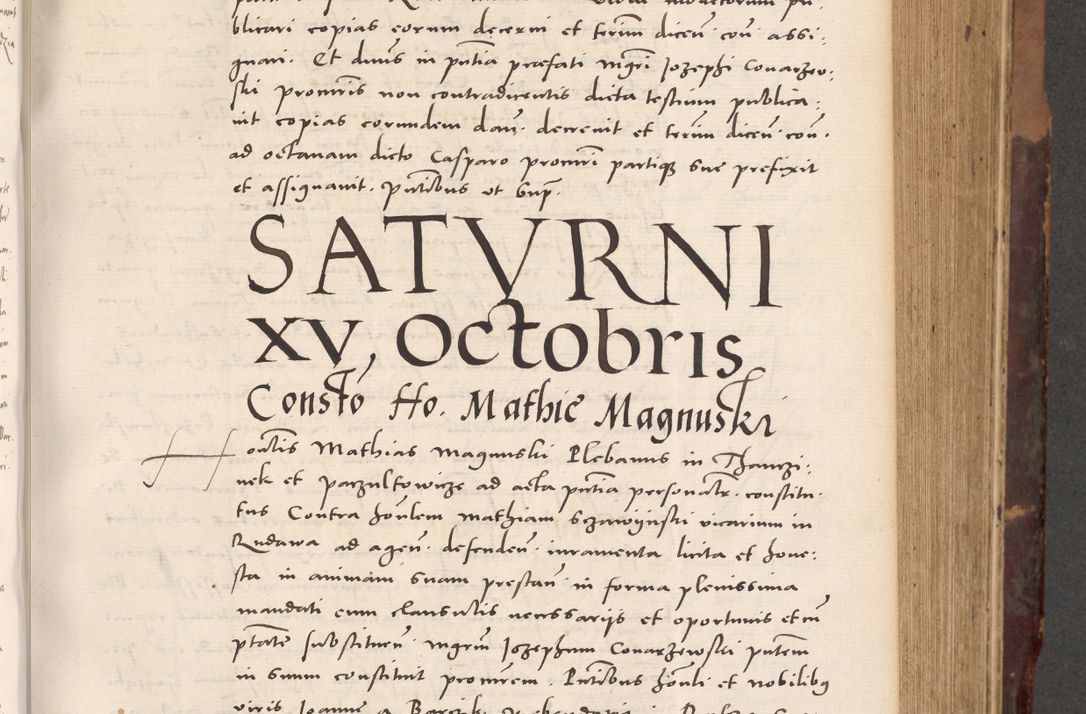 blicari copias eorum decerni et terim̄ dicen̄ cou᷑ assi:
gnari. Et d̄nus in pn̄tia præfati mgr̄i Jozephi Conarzew:
ski procuris non contradicentis dicta testium publica:
uit copias eorundem dan̄. decreuit et term̄ dicen̄ con̄.
ad octauam dicto Casparo procur̄i partiq̨ sue prefixit
et assignauit. pn̄tibus ut supr̄.
SATVRNI
XV, Octobris
Constō Ho. Mathie Magnuski
Honlis Mathias Magnuski Plebanus in Thanczi:
nek et Paczultowicze ad acta pn̄tia personalr̄. constitu.
tus Contra honlem Mathiam Sczawynski vicarium in
Rudawa ad agen̄. defenden̄. iuramenta licita et hone:
sta in animam suam prestan̄ in forma plenissima
mandati cum clausulis necessarijs et oportunis et cū
ptāte substituen̄ mgrm̄ Jozephum Conarzewski pn̄tem
in suum constituit procurem. Pn̄tibus honli et nobilibq̨
viris Joanne a